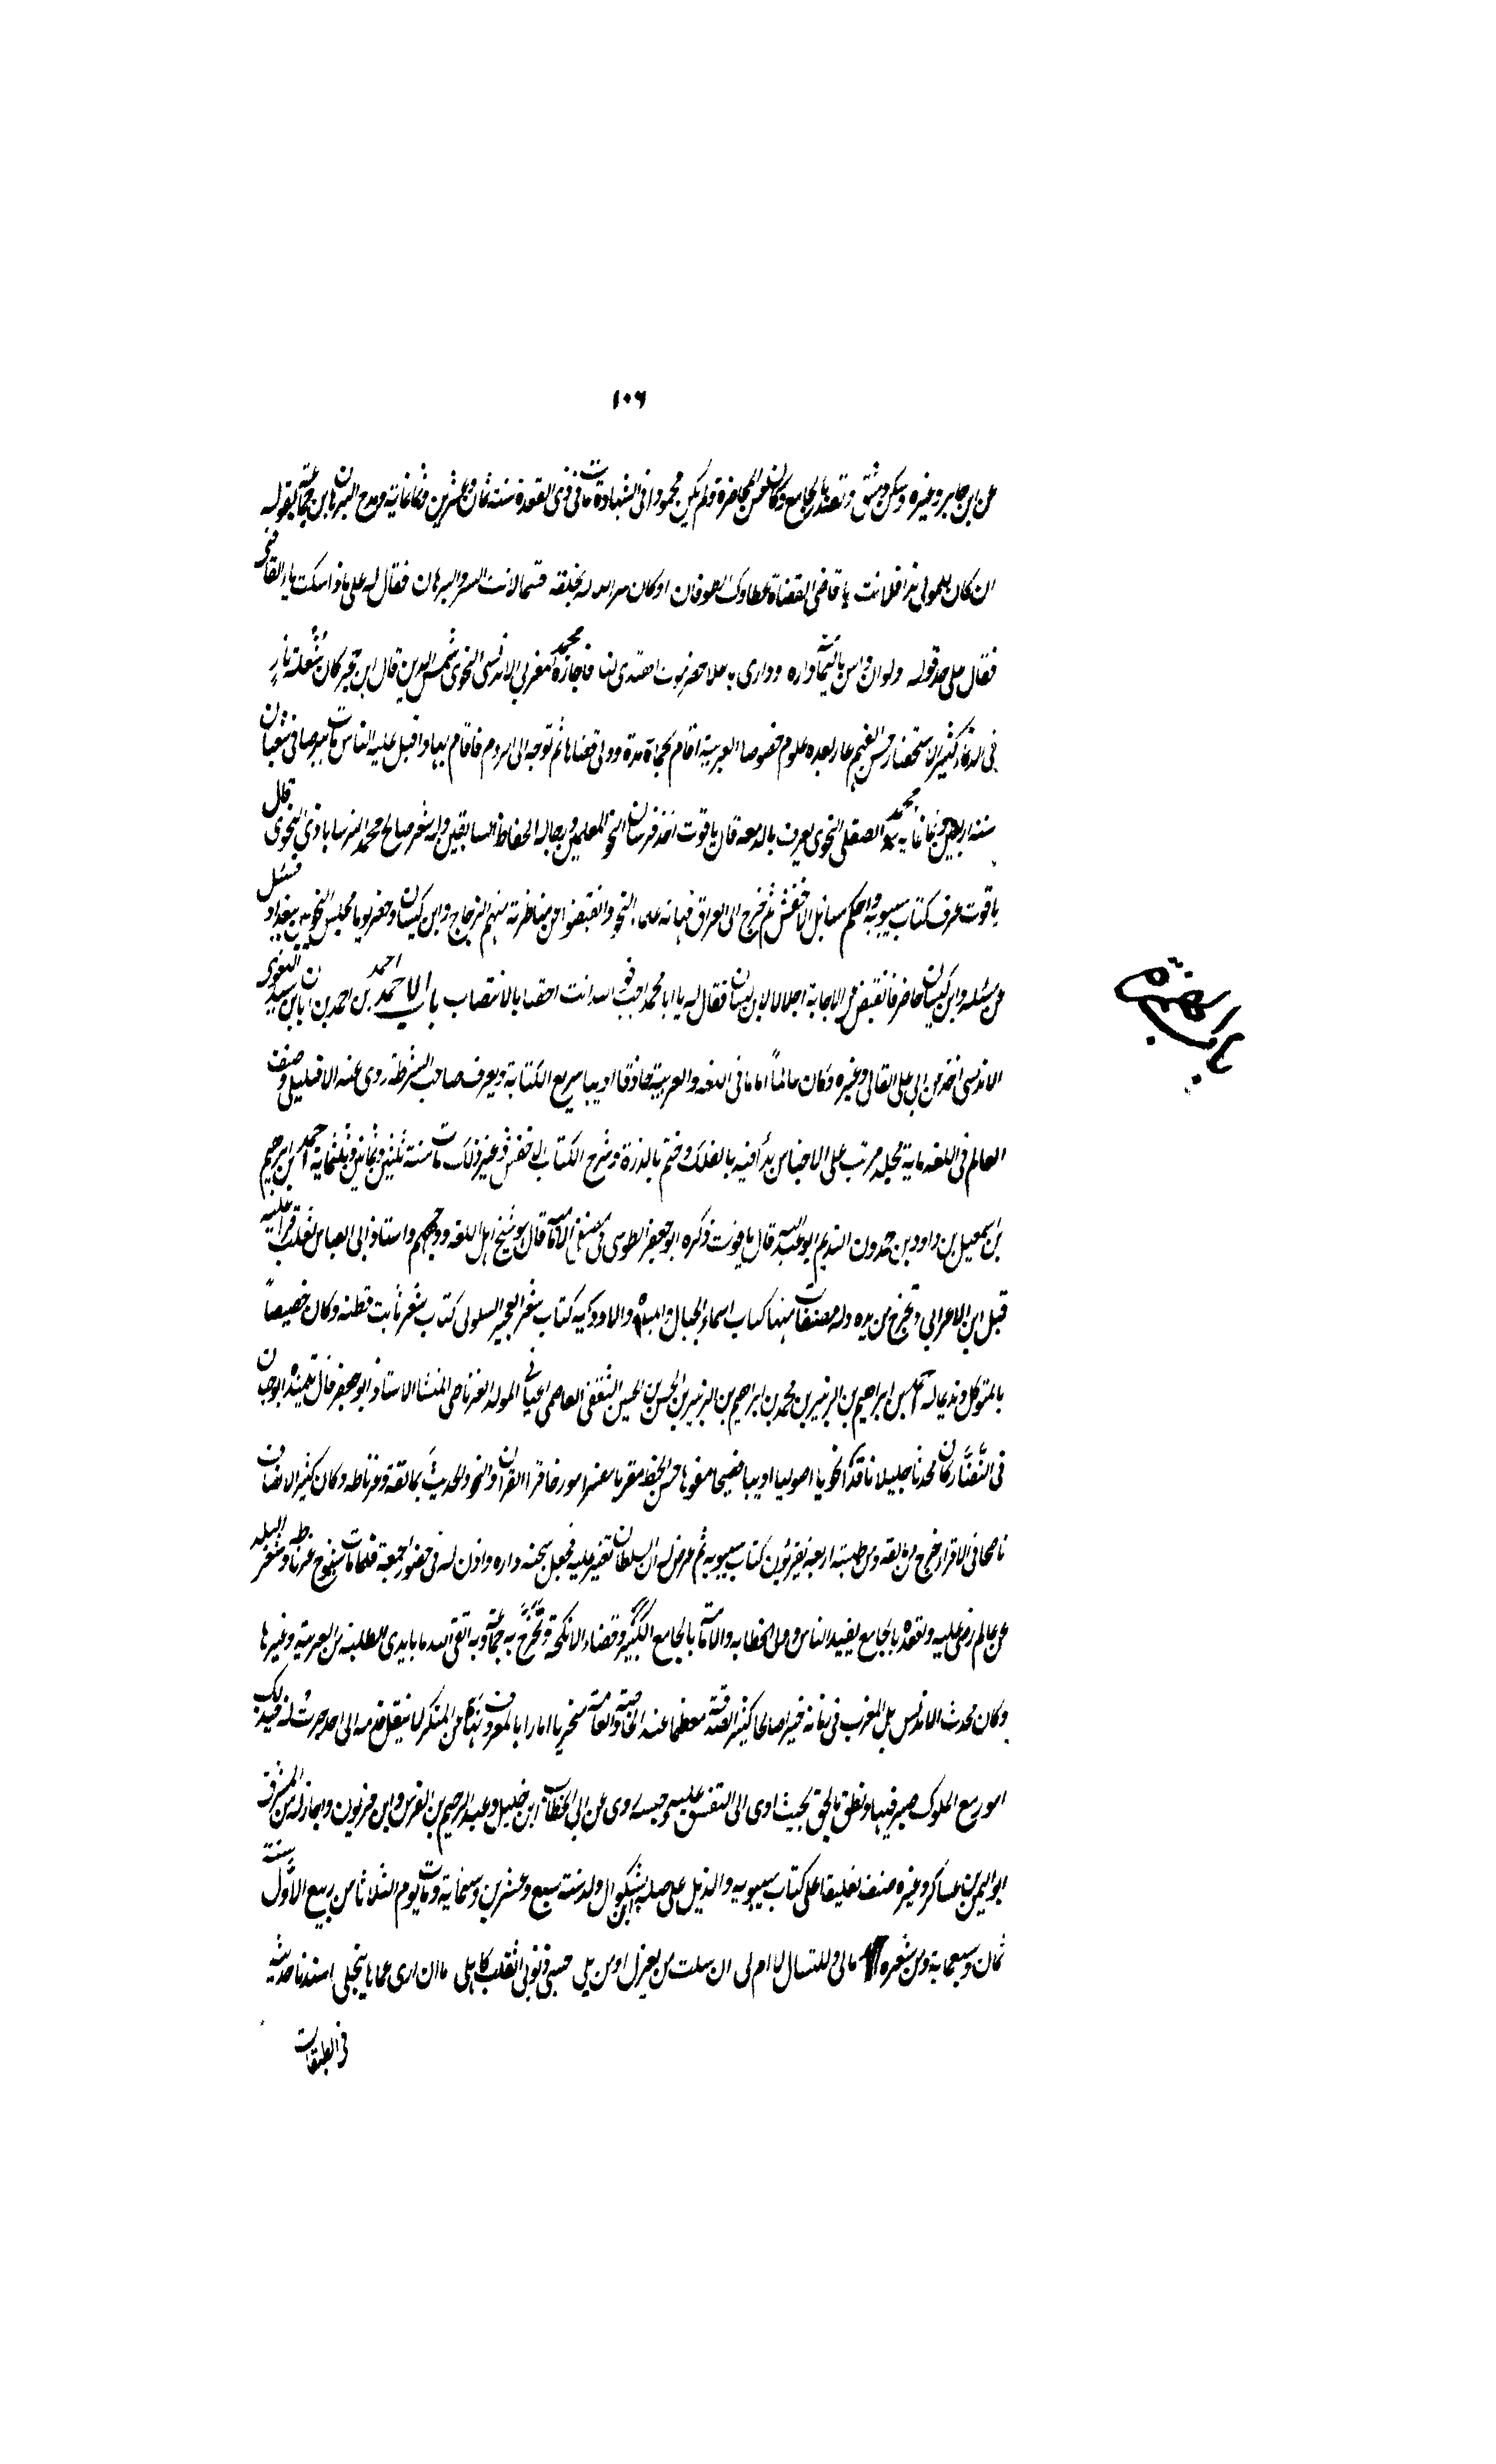 ١٠٦
عن ابن جابر وغيره وسكن دمشق وتصدر بالجامع وكان حسن المحاضرة ولم يكن محمودا في الشهادة مات في ذي القعدة سنة ثمان وعشرين وثمانمائة ومدح البرهان بن جماعة بقوله
ان كان للمولى ندا فلانت يا قاضي القضاة عطاوك الطوفان او كان سر الله بخلقه قسما لانت السر والبرهان فقال له علي ماذا اسكت ياء القاضي
فقال على حد قوله ولو ان واش باليمامة داره وداري باعلا حضرموت اهتدى لنا فاجازه محمد المغربي الاندلسي النحوي شمس الدين قال ابن حجر كان شعلة نار
في الذكاء كثير الاستحضار حسن الفهم عارفا بعده علوم خصوصا العربية اقام بحماة مدة وولي قضاها ثم توجه الى الروم فاقام بها واقبل عليه الناس مات ببرصا في شعبان
سنة اربعين وثمانماية محمد الصقلي النحوي يعرف بالدمعه قال ياقوت احد فرسان النحو المعلمين ورجاله الحفاظ السابقين وله شعر صالح محمد النرساباذي النحوي قال
ياقوت عرف كتاب سيبويه واحكم مسايل الاخفش ثم خرج الى العراق فهابه علماء النحو وانقبضوا من مناظرته منهم الزجاج وابن كيسان وحضر يوما مجلس النحويين ببغداد فسئل
عن مسئله وابن كيسان حاضر فانقبض عن الاجابة اجلالا لابن كيسان فقال له يا ابا محمد اجب فو الله انت احقنا بالانتصاب باب الاحمد احمد بن احمد بن ابان بن سيد اللغوي
الاندلسي اخذ من ابي علي القالي وغيره وكان عالماً اماما في اللغه والعربية حاذقا اديبا سريع الكتابة ويعرف بصاحب الشرطة روى عنه الافليلي وصنف
العالم في اللغه ماية مجلد مرتب على الاجناس بدأ فيه بالفلك وختم بالذرة وشرح الكتاب الاخفش وغير ذلك مات سنة ثنتين وثمانين وثلثماية احمد بن ابراهيم
بن اسمعيل بن داود بن حمدون النديم ابو عبد الله قال ياقوت ذكره ابو جعفر الطوسي في مصنفي الامامية قال هو شيخ اهل اللغه ووجههم واستاذ ابي العباس ثعلب قرا عليه
قبل ابن الاعرابي وتخرج من يده وله مصنفات منها كتاب اسماء الجبال والمياه والاودية كتاب شعر العجير السلولي كتاب شعر ثابت قطنه وكان خصيصاً
بالمتوكل ونديما له احمد بن ابراهيم بن الزبير بن محمد بن ابراهيم بن الزبير بن الحسن بن الحسين الثقفي العاصمي الجياني المولد الغرناطي المنشا الاستاذ ابو جعفر قال تلميذه ابو حيان
في النضار كان محدثا جليلا ناقدا نحويا اصوليا اديبا فصيحا مفوها حسن الخط مقريا مفسرا مورخا قرا القران والنحو والحديث بمالقة وغرناطه وكان كثير الانصاف
ناصحا في الاقرا خرج من مالقه ومن طلبته اربعة يقرئون كتاب سيبويه ثم عرض له ان السلطان تغير عليه فجعل سجنه داره واذن له في حضور الجمعة فلما مات شيوخ غرناطه وشغر البلد
عن عالم رضي عليه وقعد بالجامع يفيد الناس وولي الخطابه والامامة بالجامع الكبير وقضاء الانكحة وتخرج به جماعة وبه ابقى الله ما بايدي الطلبة من العربية وغيرها
وكان محدث الاندلس بل المغرب في زمانه خيرا صالحا كثير الصدقة معظما عند الخاصة والعامة متحريا امارا بالمعروف نهاء عن المنكر لا ينقل قدمه الى احد جرت له في ذلك
امور مع الملوك صبر فيها ونطق بالحق بحيث ادى الى التضييق عليه وحبسه روى عن ابي الخطاب ابن خليل وعبد الرحيم بن الفرس وابن فرتون واجاز له من المشرق
ابو اليمن بن عساكر وغيره صنف تعليقا على كتاب سيبويه والذيل على صلة ابن بشكوال ولد سنة سبع وعشرين وستماية ومات يوم الثلاثا من ربيع الاول سنة
ثمان وسبعماية ومن شعره مالي وللتسال لا ام لي ان سلت من يعزل او من يلي حسبي ذنوبي اثقلت كاهلي ما ان ارى غماها ينجلي اسندنا حديثه
في الطبقات
باب الهمزة